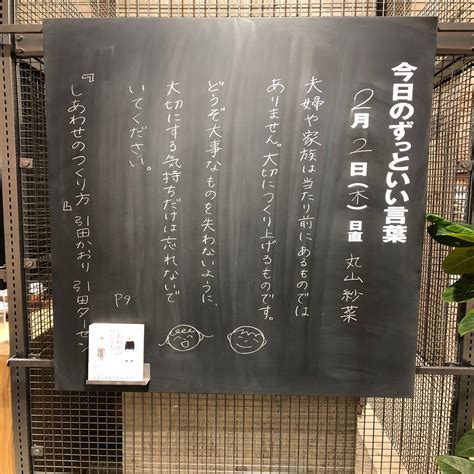 今日のずっといい言葉
2月2日(木)日直 丸山紗菜
夫婦や家族は当たり前にあるものでは
ありません。大切につくり上げるものです。
どうぞ大事なものを失わないように、
大切にする気持ちだけは忘れないで
いてください。
P9
『しあわせのつくり方』
引田かおり 引田ターセン